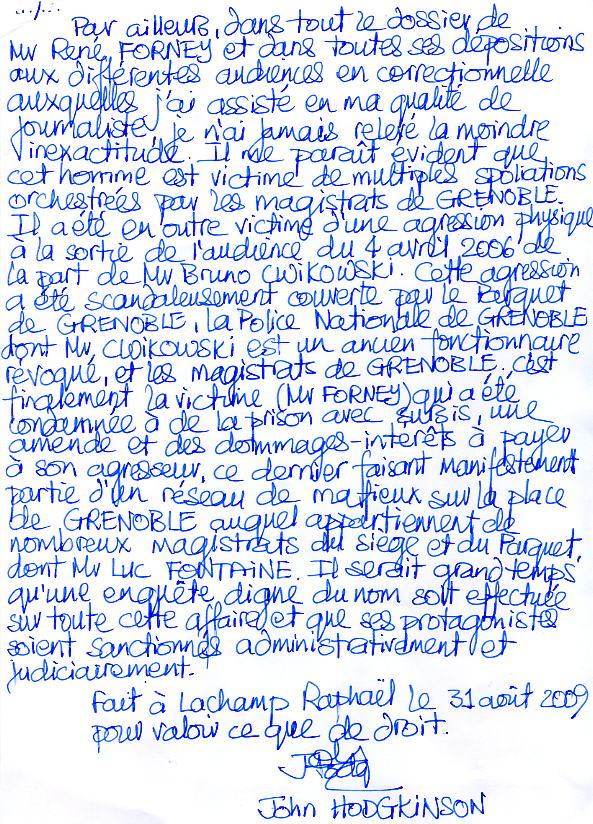 .../...
Par ailleurs, dans tout le dossier de
Mr René FORNEY et dans toutes ses dépositions
aux différentes audiences en correctionnelle
auxquelles j'ai assisté en ma qualité de
journaliste, je n'ai jamais relevé la moindre
inexactitude. Il me paraît évident que
cet homme est victime de multiples spoliations
orchestrées par les magistrats de GRENOBLE.
Il a été en outre victime d'une agression physique
à la sortie de l'audience du 4 avril 2006 de
la part de Mr Bruno CWIKOWSKI. Cette agression
a été scandaleusement couverte par le Parquet
de GRENOBLE, la Police Nationale de GRENOBLE
dont Mr CWIKOWSKI est un ancien fonctionnaire
révoqué, et les magistrats de GRENOBLE. C'est
finalement la victime (Mr FORNEY) qui a été
condamnée à de la prison avec sursis, une
amende et des dommages-intérêts à payer
à son agresseur, ce dernier faisant manifestement
partie d'un réseau de mafieux sur la place
de GRENOBLE auquel appartiennent de
nombreux magistrats du siège et du Parquet,
dont Mr Luc FONTAINE. Il serait grand temps
qu'une enquête digne du nom soit effectuée
sur toute cette affaire et que ses protagonistes
soient sanctionnés administrativement et
judiciairement.
Fait à Lachamp Raphaël le 31 août 2009
pour valoir ce que de droit.
John HODGKINSON